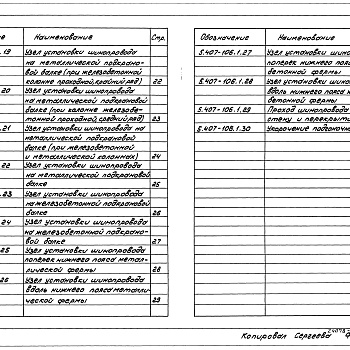 Наименование Стр.
.19 Узел установки шинопровода
на металлической подкрано-
вой балке (при железобетонной
колонне проходной, крайний ряд) 22
20 Узел установки шинопровода
на металлической подкрановой
балке (при колонне железобе-
тонной проходной, средний ряд) 23
.21 Узел установки шинопровода на
металлической подкрановой
балке (при железобетонной
и металлической колоннах) 24
22 Узел установки шинопровода
на металлической подкрановой
балке 25
.23 Узел установки шинопровода
на железобетонной подкрановой
балке 26
24 Узел установки шинопровода
на железобетонной подкрано-
вой балке 27
25 Узел установки шинопровода
поперек нижнего пояса метал-
лической фермы 28
26 Узел установки шинопровода
вдоль нижнего пояса металли-
ческой фермы 29
Обозначение Наименова
5.407-106.1.27 Узел установки шино
поперек нижнего пояса
бетонной фермы
5.407-106.1.28 Узел установки шин
вдоль нижнего пояса ж
бетонной фермы
5.407-106.1.29 Проход шинопровода
стену и перекрыти
5.407-106.1.30 Укорочение подоноч
Копировал Сергеева 24078